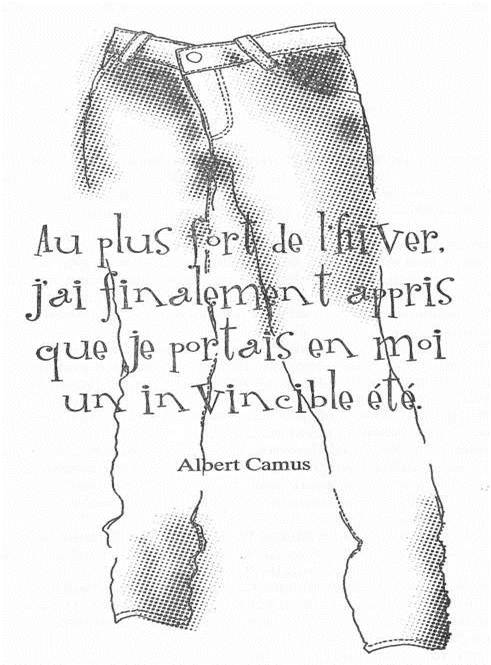 Au plus fort de l'hiver,
j'ai finalement appris
que je portais en moi
un invincible été.
Albert Camus